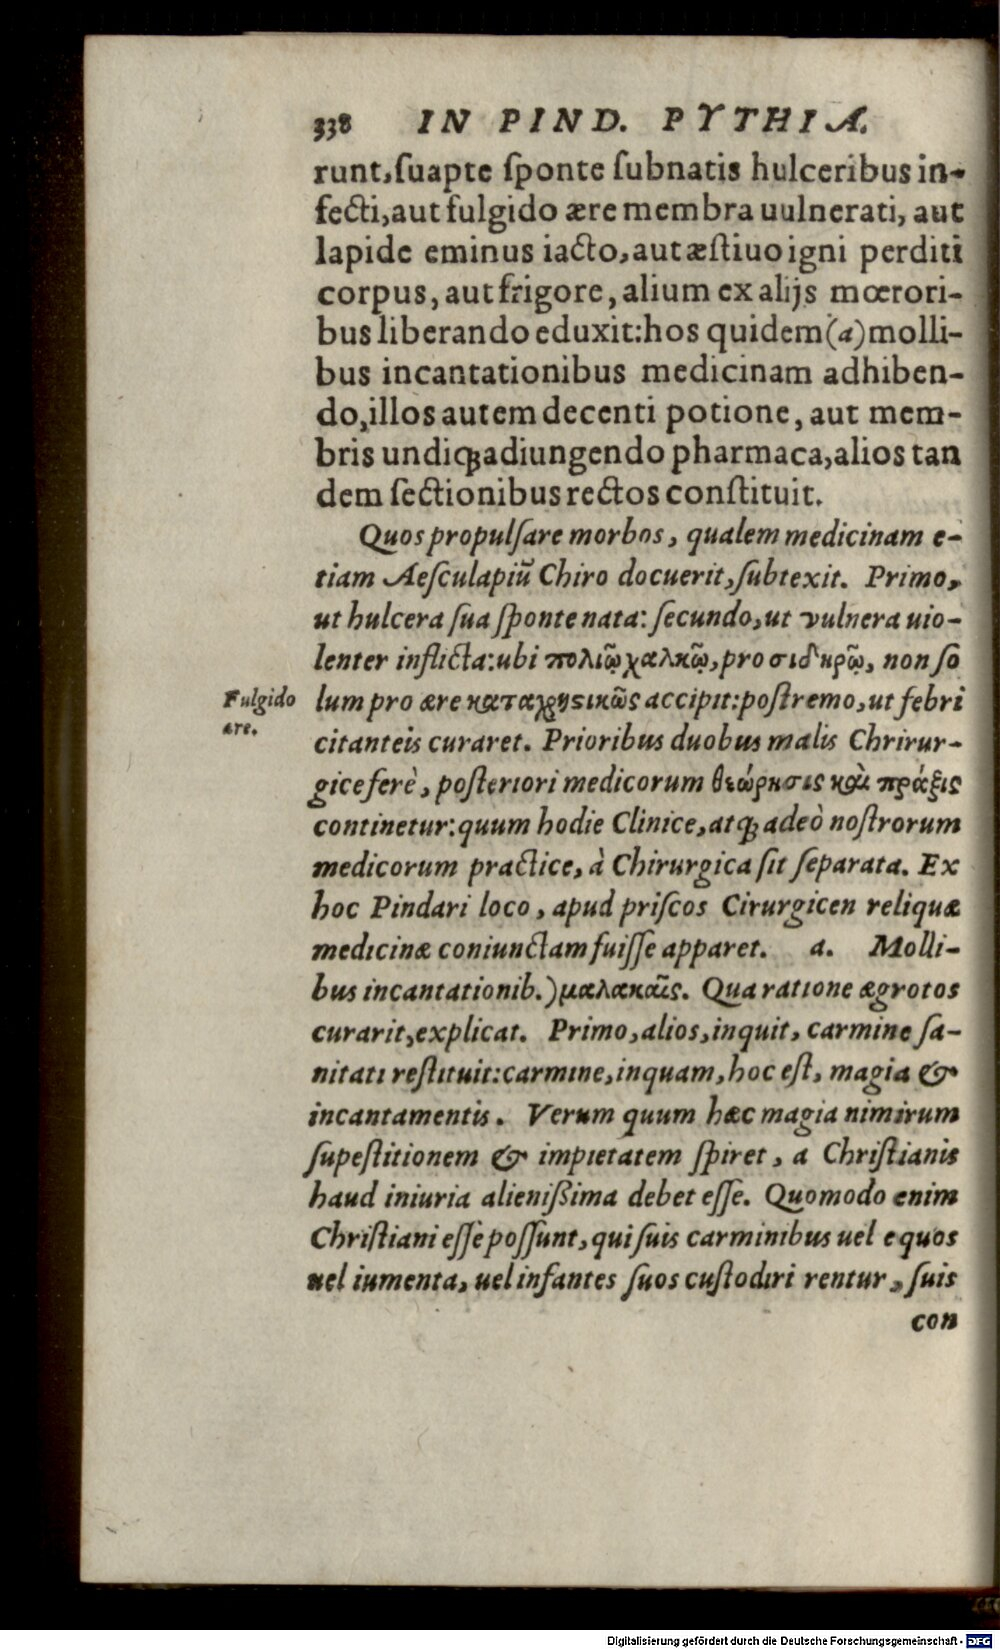 338 IN PIND. PYTHIA.
runt,ſuapte ſponte ſubnatis hulceribus in-
fecti,aut fulgido ære membra uulnerati, aut
lapide eminus iacto, aut æſtiuo igni perditi
corpus, aut frigore, alium ex alijs mœrori-
bus liberando eduxit:hos quidem(a)molli-
bus incantationibus medicinam adhiben-
do,illos autem decenti potione, aut mem-
bris undiqꝫ adiungendo pharmaca,alios tan
dem ſectionibus rectos conſtituit.
Quos propulſare morbos, qualem medicinam e-
tiam Aeſculapiũ Chiro docuerit,ſubtexit. Primo,
ut hulcera ſua ſponte nata: ſecundo,ut vulnera uio-
lenter inflicta:ubi πολιῷ χαλκῷ, pro σιδηρῷ, non ſo
Fulgido
ære.
lum pro ære καταχρηϛικῶς accipit:poſtremo,ut febri
citanteis curaret. Prioribus duobus malis Chrirur-
gice ferè, poſteriori medicorum θεώρησις καὶ πράξις
continetur:quum hodie Clinice,atqꝫ adeò noſtrorum
medicorum practice, à Chirurgica ſit ſeparata. Ex
hoc Pindari loco, apud priſcos Cirurgicen reliquæ
medicinæ coniunctam fuiſſe apparet. a. Molli-
bus incantationib.)μαλακαῖς. Qua ratione ægrotos
curarit,explicat. Primo,alios,inquit, carmine ſa-
nitati reſtituit:carmine,inquam,hoc eſt, magia &
incantamentis. Verum quum hæc magia nimirum
ſupeſtitionem & impietatem ſpiret, a Chriſtianis
haud iniuria alienißima debet eſſe. Quomodo enim
Chriſtiani eſſe poſſunt,qui ſuis carminibus uel equos
uel iumenta, uel infantes ſuos cuſtodiri rentur, ſuis
con
Digitalisierung gefördert durch die Deutsche Forschungsgemeinschaft - DFG